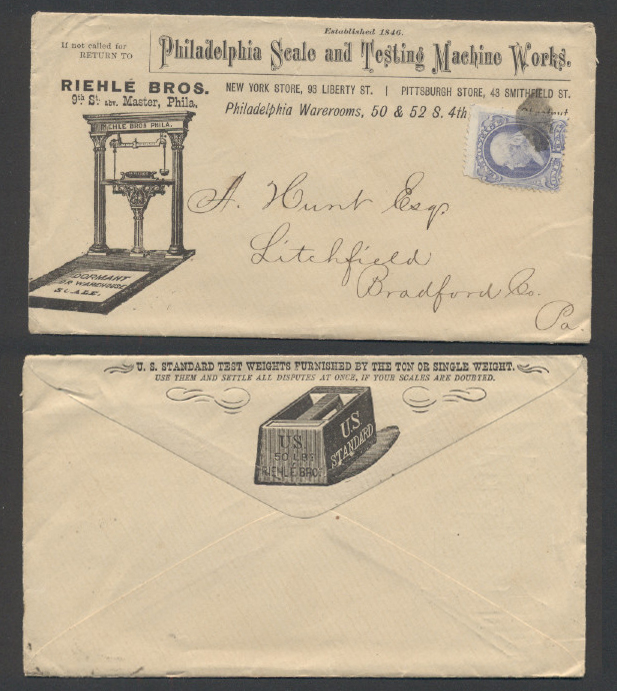 Established 1846.
If not called for
RETURN TO
Philadelphia Scale and Testing Machine Works.
RIEHLÉ BROS.
9th St. Abv. Master, Phila.
NEW YORK STORE, 93 LIBERTY ST. | PITTSBURGH STORE, 43 SMITHFIELD ST.
Philadelphia Warerooms, 50 & 52 S. 4th
RIEHLE BROS PHILA.
DORMANT
OR WAREHOUSE
SCALE.
A. Hunt Esq.
Litchfield
Bradford Co.
Pa
U. S. STANDARD TEST WEIGHTS FURNISHED BY THE TON OR SINGLE WEIGHT.
USE THEM AND SETTLE ALL DISPUTES AT ONCE, IF YOUR SCALES ARE DOUBTED.
U.S.
50 LBS
RIEHLE BRO.
U.S.
STANDARD